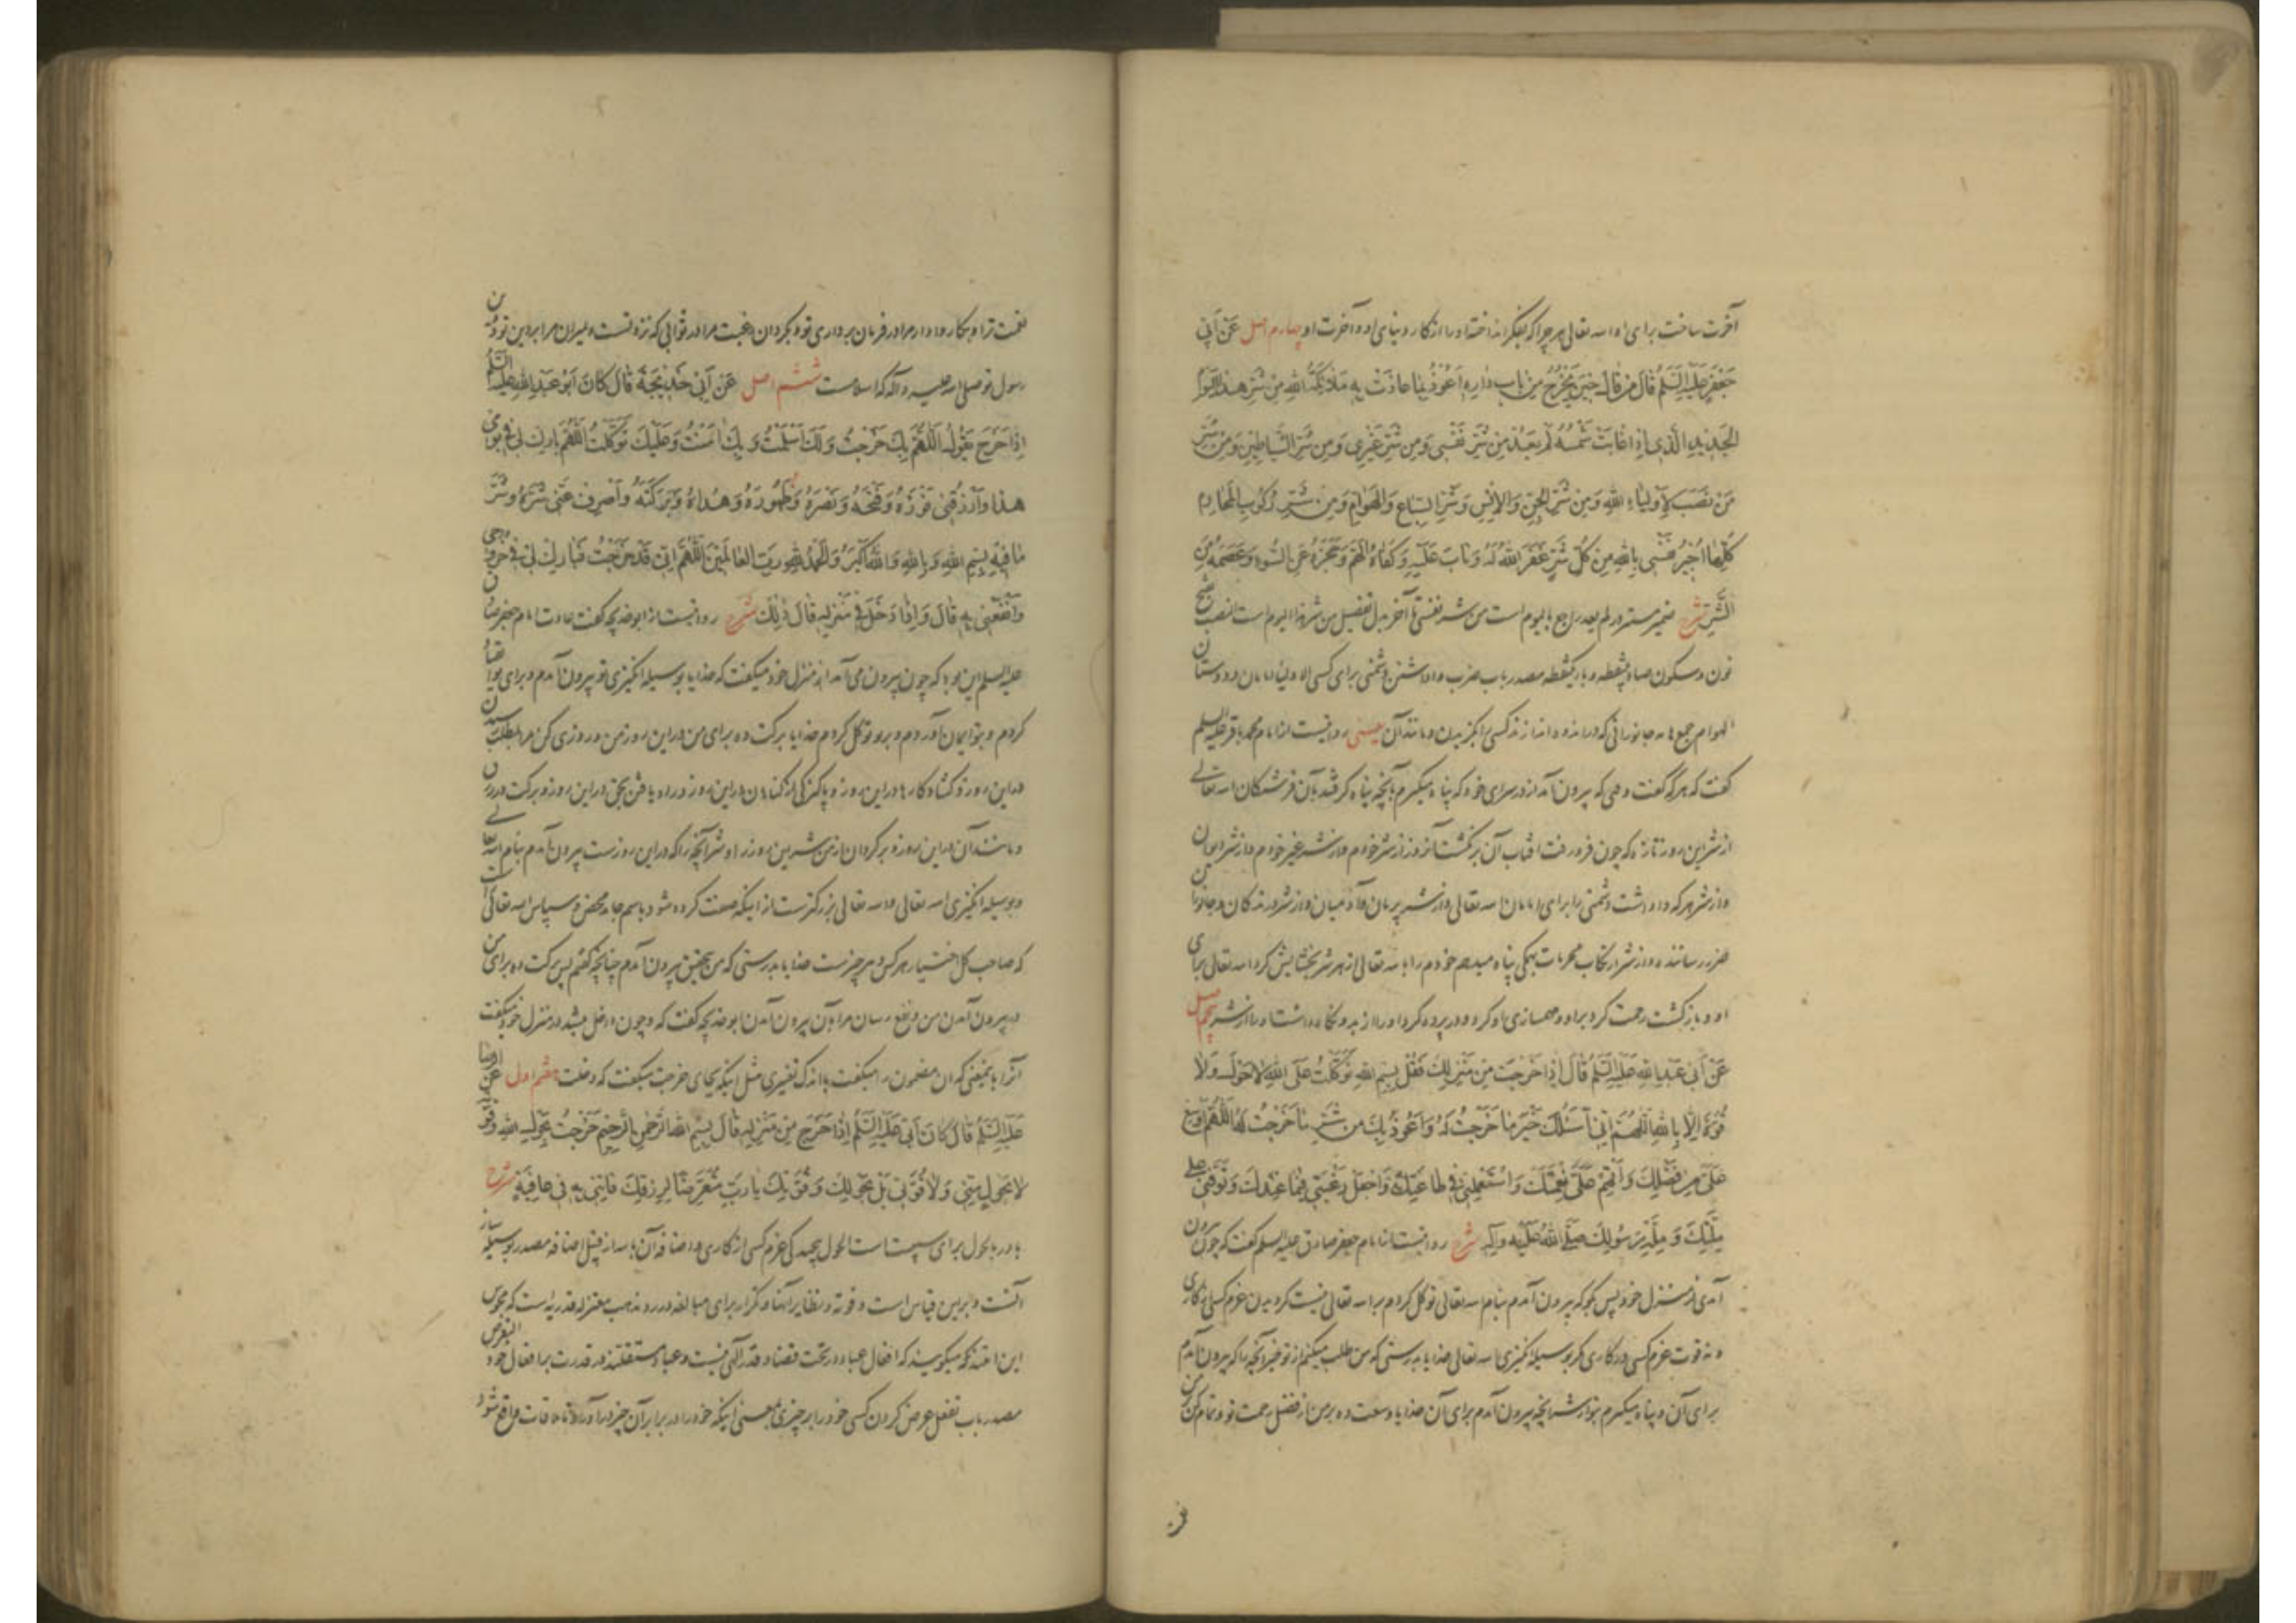 آخرت ساخت برای او الله تعالی هر چرا که بفکر انداخته او را از کار دنیای او و آخرت او چهارم اصل عَنْ أَبِي
جَعْفَرٍ عَلَيْهِ السَّلَمُ قَالَ مَنْ قَالَ حِينَ يَخْرُجُ مِنْ بَابِ دَارِهِ أَعُوذُ بِمَا عَاذَتْ بِهِ مَلَائِكَةُ اللهِ مِنْ شَرِّ هٰذَا الْيَوْمِ
الْجَدِيدِ الَّذِي إِذَا غَابَتْ شَمْسُهُ لَمْ يَعُدْ مِنْ شَرِّ نَفْسِي وَمِنْ شَرِّ غَيْرِي وَمِنْ شَرِّ الشَّيَاطِينِ وَمِنْ شَرِّ
مَنْ نَصَبَ لِأَوْلِيَاءِ اللهِ وَمِنْ شَرِّ الْجِنِّ وَالْإِنْسِ وَشَرِّ السِّبَاعِ وَالْهَوَامِّ وَمِنْ شَرِّ رُكُوبِ الْمَحَارِمِ
كُلِّهَا أُجِيرُ نَفْسِي بِاللهِ مِنْ كُلِّ شَرٍّ غَفَرَ اللهُ لَهُ وَتَابَ عَلَيْهِ وَكَفَاهُ الْهَمَّ وَحَجَزَهُ عَنِ السُّوءِ وَعَصَمَهُ مِنَ
الشَّرِّ شرح ضمیر مستتر در لم یعد راجع بالیوم است من شر نفسی تا آخر بدل تفصیل من شر هذا الیوم است النصب بفتح
نون و سکون صاد بینقطه و باء یکنقطه مصدر باب ضرب واداشتن دشمنی برای کسی الاولیاء امامان و دوستان
الهوام جمع هامه جانورانی که درانده و اندازند کسی را گزیدن و مانند آن یعنی روایتست از امام محمد باقر علیه السلم
گفت که هر که گفت وقتی که بیرون آمد از در سرای خود که پناه میگیرم بآنچه پناه گرفتند بآن فرشتگان الله تعالی
از شر این روز تازه که چون فرو رفت آفتاب آن برنگشت آنروز از شر خودم و از شر غیر خودم و از شر دیوان
و از شر هر که واداشت دشمنی را برای امامان الله تعالی و از شر پریان و آدمیان و از شر درندگان و جانوران
ضرر رساننده و از شر ارتکاب محرمات همگی پناه میدهم خودم را بالله تعالی از هر شر بخشایش کرد الله تعالی برای
او و بازگشت رحمت کرد بر او و مهمسازی او کرد و در پرده کرد او را از بد و نگاه داشت او را از شر پنجم اصل
عَنْ أَبِي عَبْدِ اللهِ عَلَيْهِ السَّلَمُ قَالَ إِذَا خَرَجْتَ مِنْ مَنْزِلِكَ فَقُلْ بِسْمِ اللهِ تَوَكَّلْتُ عَلَى اللهِ لَا حَوْلَ وَلَا
قُوَّةَ إِلَّا بِاللهِ اللّٰهُمَّ إِنِّي أَسْئَلُكَ خَيْرَ مَا خَرَجْتُ لَهُ وَأَعُوذُ بِكَ مِنْ شَرِّ مَا خَرَجْتُ لَهُ اللّٰهُمَّ أَوْسِعْ
عَلَيَّ مِنْ فَضْلِكَ وَأَتْمِمْ عَلَيَّ نِعْمَتَكَ وَاسْتَعْمِلْنِي فِي طَاعَتِكَ وَاجْعَلْ رَغْبَتِي فِيمَا عِنْدَكَ وَتَوَفَّنِي عَلَى
مِلَّتِكَ وَمِلَّةِ رَسُولِكَ صَلَّى اللهُ عَلَيْهِ وَآلِهِ شرح روایتست از امام جعفر صادق علیه السلم گفت که چون بیرون
آمدی از منزل خود پس بگو که بیرون آمدم بنام الله تعالی توکل کردم بر الله تعالی نیست گردیدن عزم کسی از کاری
و نه قوت عزم کسی در کاری مگر بوسیله انگیزی الله تعالی خدایا بدرستی که من طلب میکنم از تو خیر آنچه را که بیرون آمدم
برای آن و پناه میگیرم بتو از شر آنچه بیرون آمدم برای آن خدایا وسعت ده بر من از فضل رحمت تو و تمام کن بر من
نعمت ترا و بکار وادار مرا در فرمان برداری تو و بگردان رغبت مرا در ثوابی که نزد تست و بمیران مرا بر دین تو و دین
رسول تو صلی الله علیه و آله که اسلامست ششم اصل عَنْ أَبِي خَدِيجَةَ قَالَ كَانَ أَبُو عَبْدِ اللهِ عَلَيْهِ السَّلَمُ
إِذَا خَرَجَ يَقُولُ اللّٰهُمَّ بِكَ خَرَجْتُ وَلَكَ أَسْلَمْتُ وَبِكَ آمَنْتُ وَعَلَيْكَ تَوَكَّلْتُ اللّٰهُمَّ بَارِكْ لِي فِي يَوْمِي
هٰذَا وَارْزُقْنِي فَوْزَهُ وَفَتْحَهُ وَنَصْرَهُ وَطَهُورَهُ وَهُدَاهُ وَبَرَكَتَهُ وَاصْرِفْ عَنِّي شَرَّهُ وَشَرَّ
مَا فِيهِ بِسْمِ اللهِ وَبِاللهِ وَاللهُ أَكْبَرُ وَالْحَمْدُ لِلّٰهِ رَبِّ الْعَالَمِينَ اللّٰهُمَّ إِنِّي قَدْ خَرَجْتُ فَبَارِكْ لِي فِي خُرُوجِي
وَانْفَعْنِي بِهِ قَالَ وَإِذَا دَخَلَ فِي مَنْزِلِهِ قَالَ ذٰلِكَ شرح روایتست از ابو خدیجه گفت عادت امام جعفر صادق
علیه السلم این بود که چون بیرون می آمد از منزل خود میگفت که خدایا بوسیله انگیزی تو بیرون آمدم و برای تو انقیاد
کردم و بتو ایمان آوردم و بر تو توکل کردم خدایا برکت ده برای من در این روز من و روزی کن مرا بمطلب رسیدن
در این روز و گشاد کارها در این روز و پاکیزگی از گناهان در این روز و راه یافتن بحق در این روز و برکت در رزق
و مانند آن در این روز و برگردان از من شر این روز را و شر آنچه را که در این روزست بیرون آمدم بنام الله تعالی
و بوسیله انگیزی الله تعالی و الله تعالی بزرگترست از اینکه صفت کرده شود باسم جامد محض و سپاس الله تعالی راست
که صاحب کل اختیار هر کس و هر چیزست خدایا بدرستی که من بتحقیق بیرون آمدم چنانچه گفتم پس برکت ده برای من
در بیرون آمدن من و نفع رسان مرا بآن بیرون آمدن ابو خدیجه گفت که و چون داخل میشد در منزل خود میگفت
آنرا بمعنی که این مضمون را میگفت باندک تغییری مثل اینکه بجای خرجت میگفت که دخلت هفتم اصل عَنِ الرِّضَا
عَلَيْهِ السَّلَمُ قَالَ كَانَ أَبِي عَلَيْهِ السَّلَمُ إِذَا خَرَجَ مِنْ مَنْزِلِهِ قَالَ بِسْمِ اللهِ الرَّحْمٰنِ الرَّحِيمِ خَرَجْتُ بِحَوْلِ اللهِ وَقُوَّتِهِ
لَا بِحَوْلٍ مِنِّي وَلَا قُوَّتِي بَلْ بِحَوْلِكَ وَقُوَّتِكَ يَا رَبِّ مُتَعَرِّضًا لِرِزْقِكَ فَأْتِنِي بِهِ فِي عَافِيَةٍ شرح
با در بحول برای سببیت است الحول پیچیدگی عزم کسی از کاری و اضافه آن بالله از قبیل اضافه مصدر بوسیله ساز
آنست و برین قیاس است و قوته و نظایر آنها و تکرار برای مبالغه در رد مذهب معتزله قدریه است که مجوس
این امتند که میگویند که افعال عباد در تحت قضا و قدر الهی نیست و عباد مستقلند در قدرت بر افعال خود التعرض
مصدر باب تفعل عرض کردن کسی خود را بر چیزی بمعنی اینکه خود را در برابر آن چیز درآورد تا ملاقات واقع شود